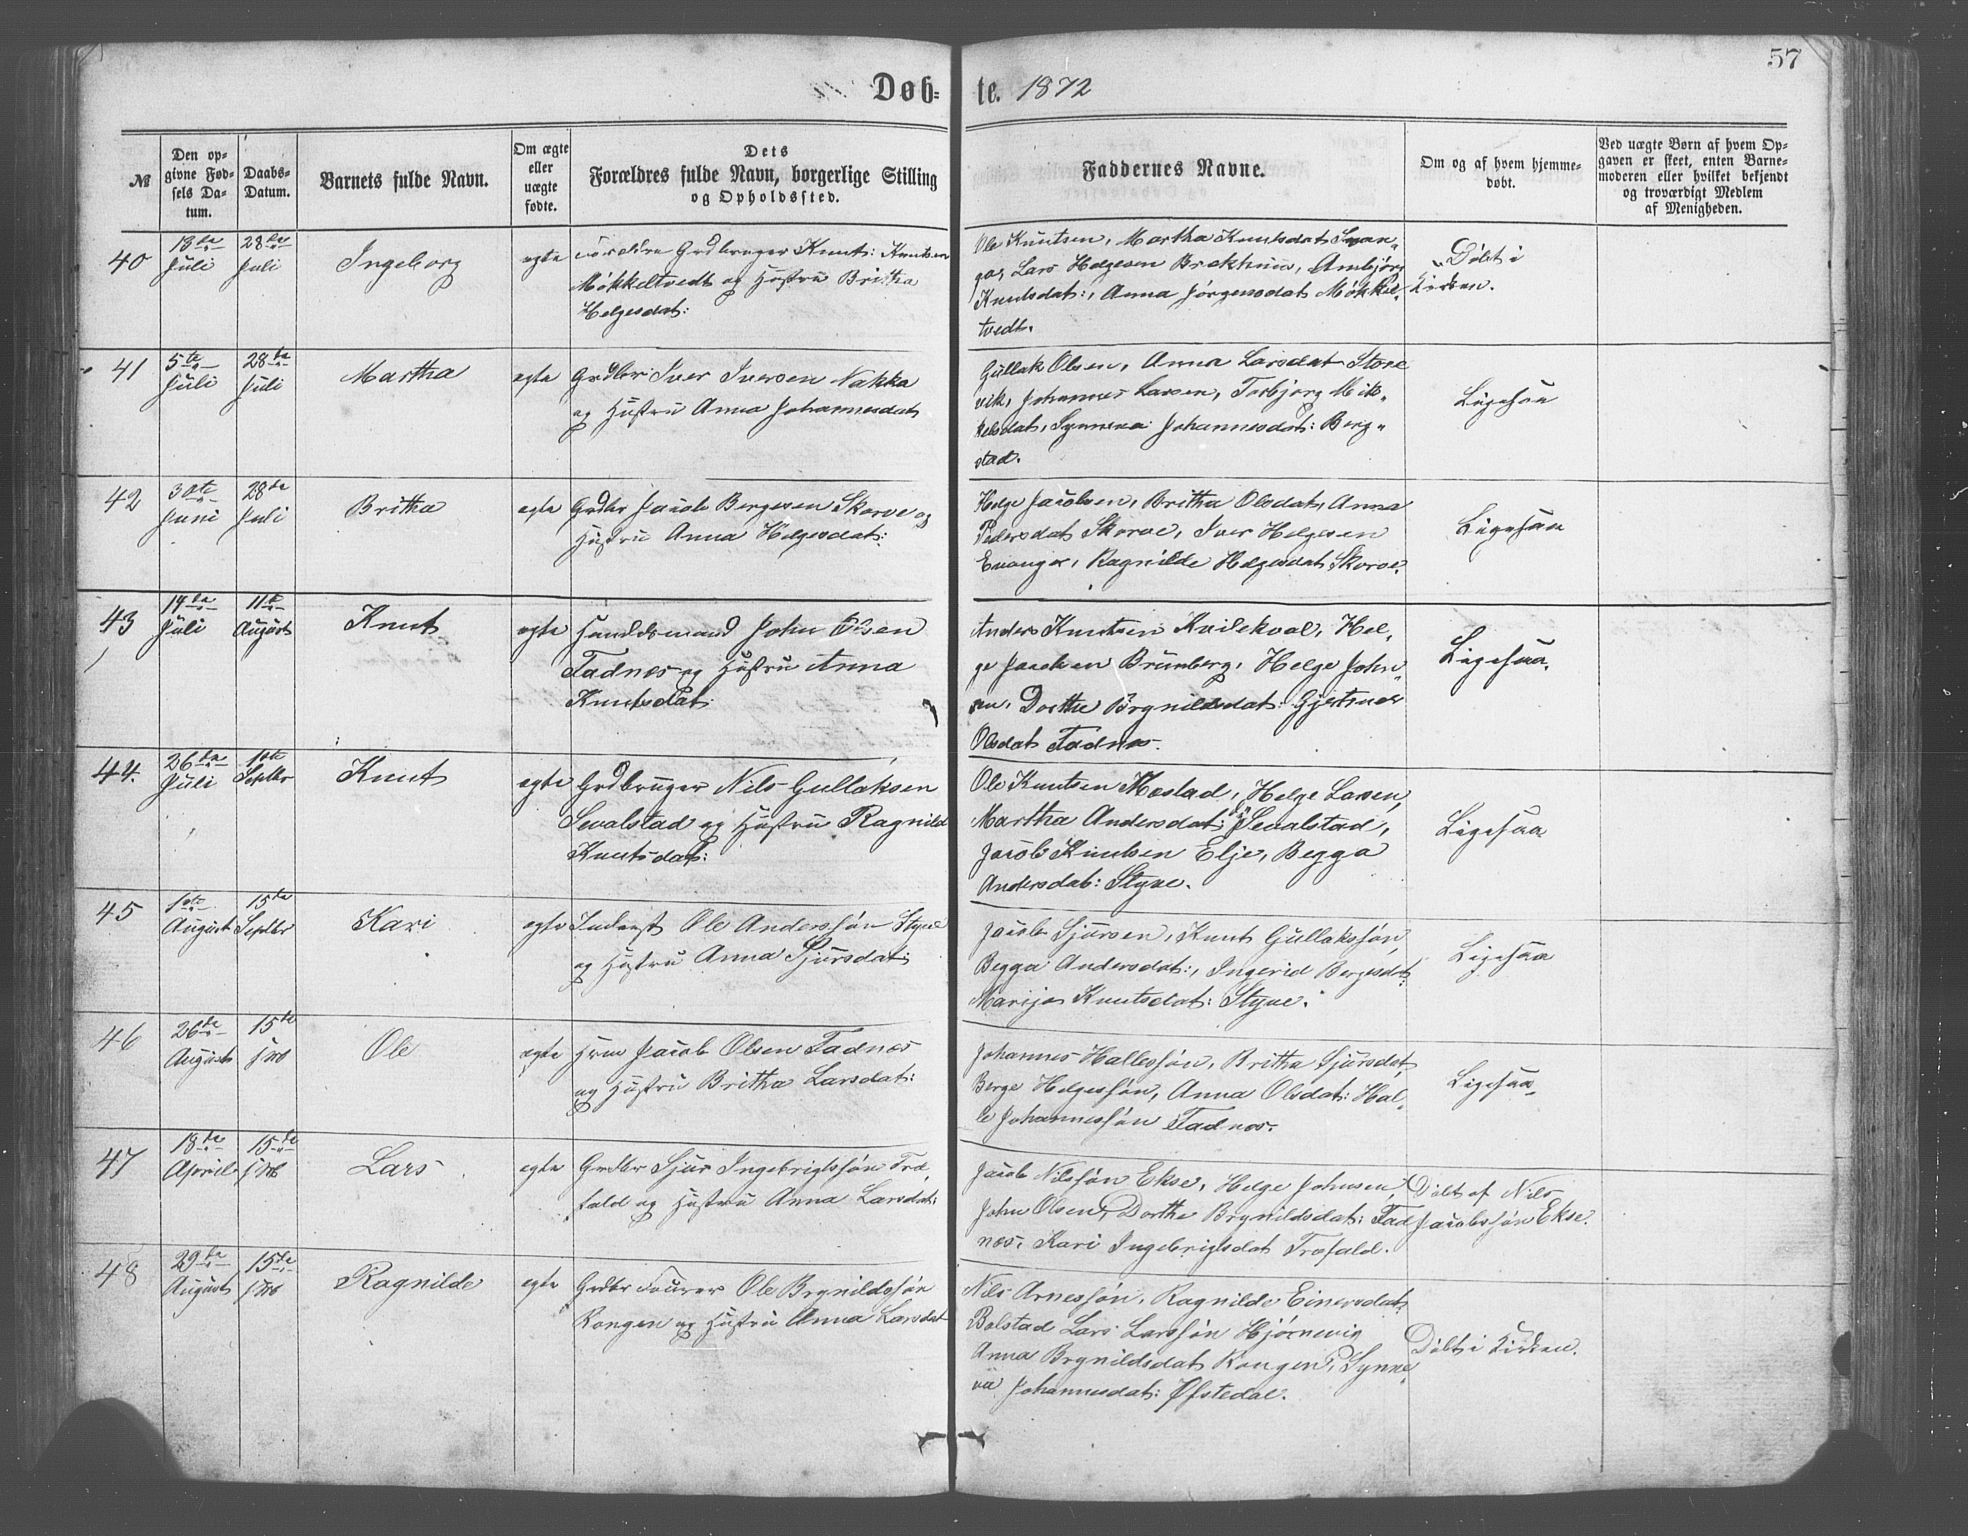 57
Døb= te. 1872
№
Den op=
givne Fød=
sels Da=
tum.
Daabs=
Datum.
Barnets fulde Navn.
Om ægte
eller
uægte
fødte.
Dets
Forældres fulde Navn, borgerlige Stilling
og Opholdssted.
Faddernes Navne.
Om og af hvem hjemme=
døbt.
Ved uægte Børn af hvem Op=
gaven er skeet, enten Barne=
moderen eller hvilket bekjendt
og troværdigt Medlem
af Menigheden.
40
18de
Juli
28de
Juli
Ingeborg
egte
Forældre Grdbruger Knut: Knutsen
Møkkeltvedt og Hustru Britha
Helgesdat:
Ole Knutsen, Martha Knutsdat
Lars Helgesen Brekhuus, Ambjørg
Knutsdat:, Anna Jørgensdat Møkkel„
tvedt.
Døbt i
Kirken.
41
5te
Juli
28de
Juli
Martha
egte
Grdbr Iver Iversen Nakka
og Hustru Anna Johannesdat
Gullak Olsen, Anna Larsdat Store
vik, Johannes Larsen, Torbjorg Mik„
kelsdat, Synneva Johannesdat: Berg„
stad.
Ligesaa
42
30te
Juni
28de
Juli
Britha
egte
Grdbr Jacob Bergesen Skorve og
Hustru Anna Helgesdat:
Helge Jacobsen, Britha Olsdat, Anna
Pedersdat Skorve, Iver Helgesen
Evanger, Ragnilde Helgesdat Skorve.
Ligesaa
43
14de
Juli
11te
August
Knut
egte
Huusmand John Olsen
Fadnes og Hustru Anna
Knutsdat:
Anders Knutsen Kvilekval, Hel„
ge Jacobsen Brunberg, Helge John„
sen, Dorthe Brynildsdat: Gjertrud
Olsdat Fadnes.
Ligesaa.
44.
26de
Juli
1ste
Septbr
Knut
egte
Grdbruger Nils Gullaksen
Sevalstad og Hustru Ragnild
Knutsdat:
Ole Knutsen Mestad, Helge Larsen,
Martha Andersdat: Sevalstad,
Jacob Knutsen Elje, Begga
Andersdat: Styve.
Ligesaa
45
1ste
August
15de
Septbr
Kari
egte
Inderst Ole Anderssøn Styve
og Hustru Anna Sjursdat:
Jacob Sjursen, Knut Gullakssøn,
Begga Andersdat:, Ingerid Bergesdat:
Marija Knutsdat: Styve.
Ligesaa
46
26de
August
15de
Ole
egte
Hmd Jacob Olsen Fadnes
og Hustru Britha Larsdat:
Johannes Hallessøn, Britha Sjursdat,
Berge Helgessøn, Anna Olsdat: Hal„
le Johannessøn Fadnes.
Ligesaa
47
18de
April
15de
Lars
egte
Grdbr Sjur Ingebrigtssøn Træ„
fald og Hustru Anna Larsdat:
Jacob Nilssøn Ekse, Helge Johnsen,
John Olsen, Dorthe Brynildsdat: Fad
nes, Kari Ingebrigtsdat Træfald.
Døbt af Nils
Jacobssøn Ekse.
48
29de
August
15de
Ragnilde
egte
Grdbr Ole Brynildssøn
Kongen og Hustru Anna Larsdat
Nils Arnessøn, Ragnilde Einersdat:
Bolstad Lars Larssøn Hjørnevig
Anna Brynildsdat Kongen, Synne„
va Johannesdat: Øfstedal.
Døbt i Kirken.